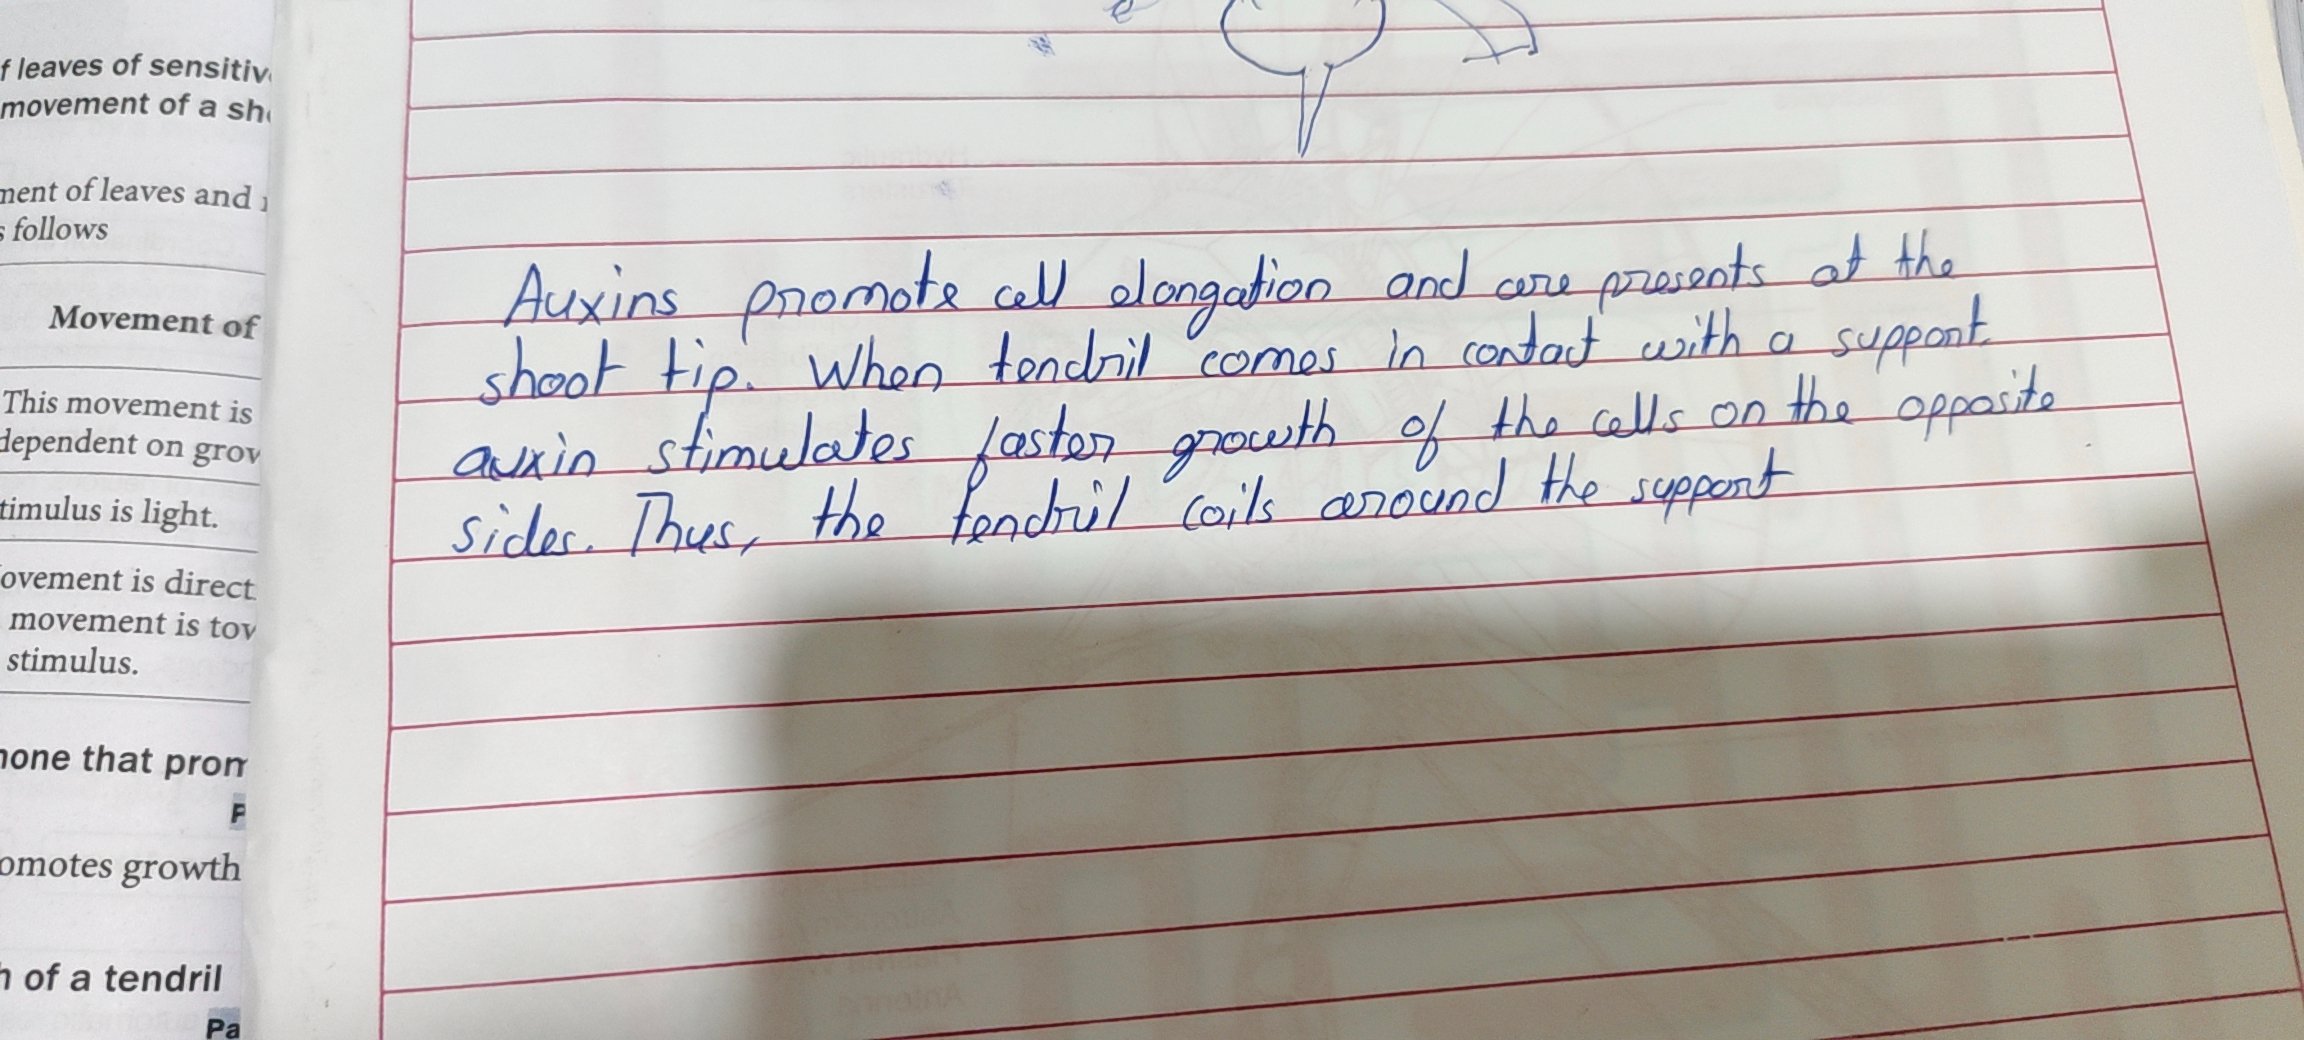 f leaves of sensitiv
movement of a sh
ment of leaves and
s follows
Movement of
This movement is
dependent on grov
timulus is light.
ovement is direct
movement is tov
stimulus.
none that prom
P
omotes growth
h of a tendril
Pa
Auxins promote cell elongation and are presents at the
shoot tip. When tendril comes in contact with a support.
auxin stimulates faster growth of the cells on the opposite
sides. Thus, the tendril coils around the support